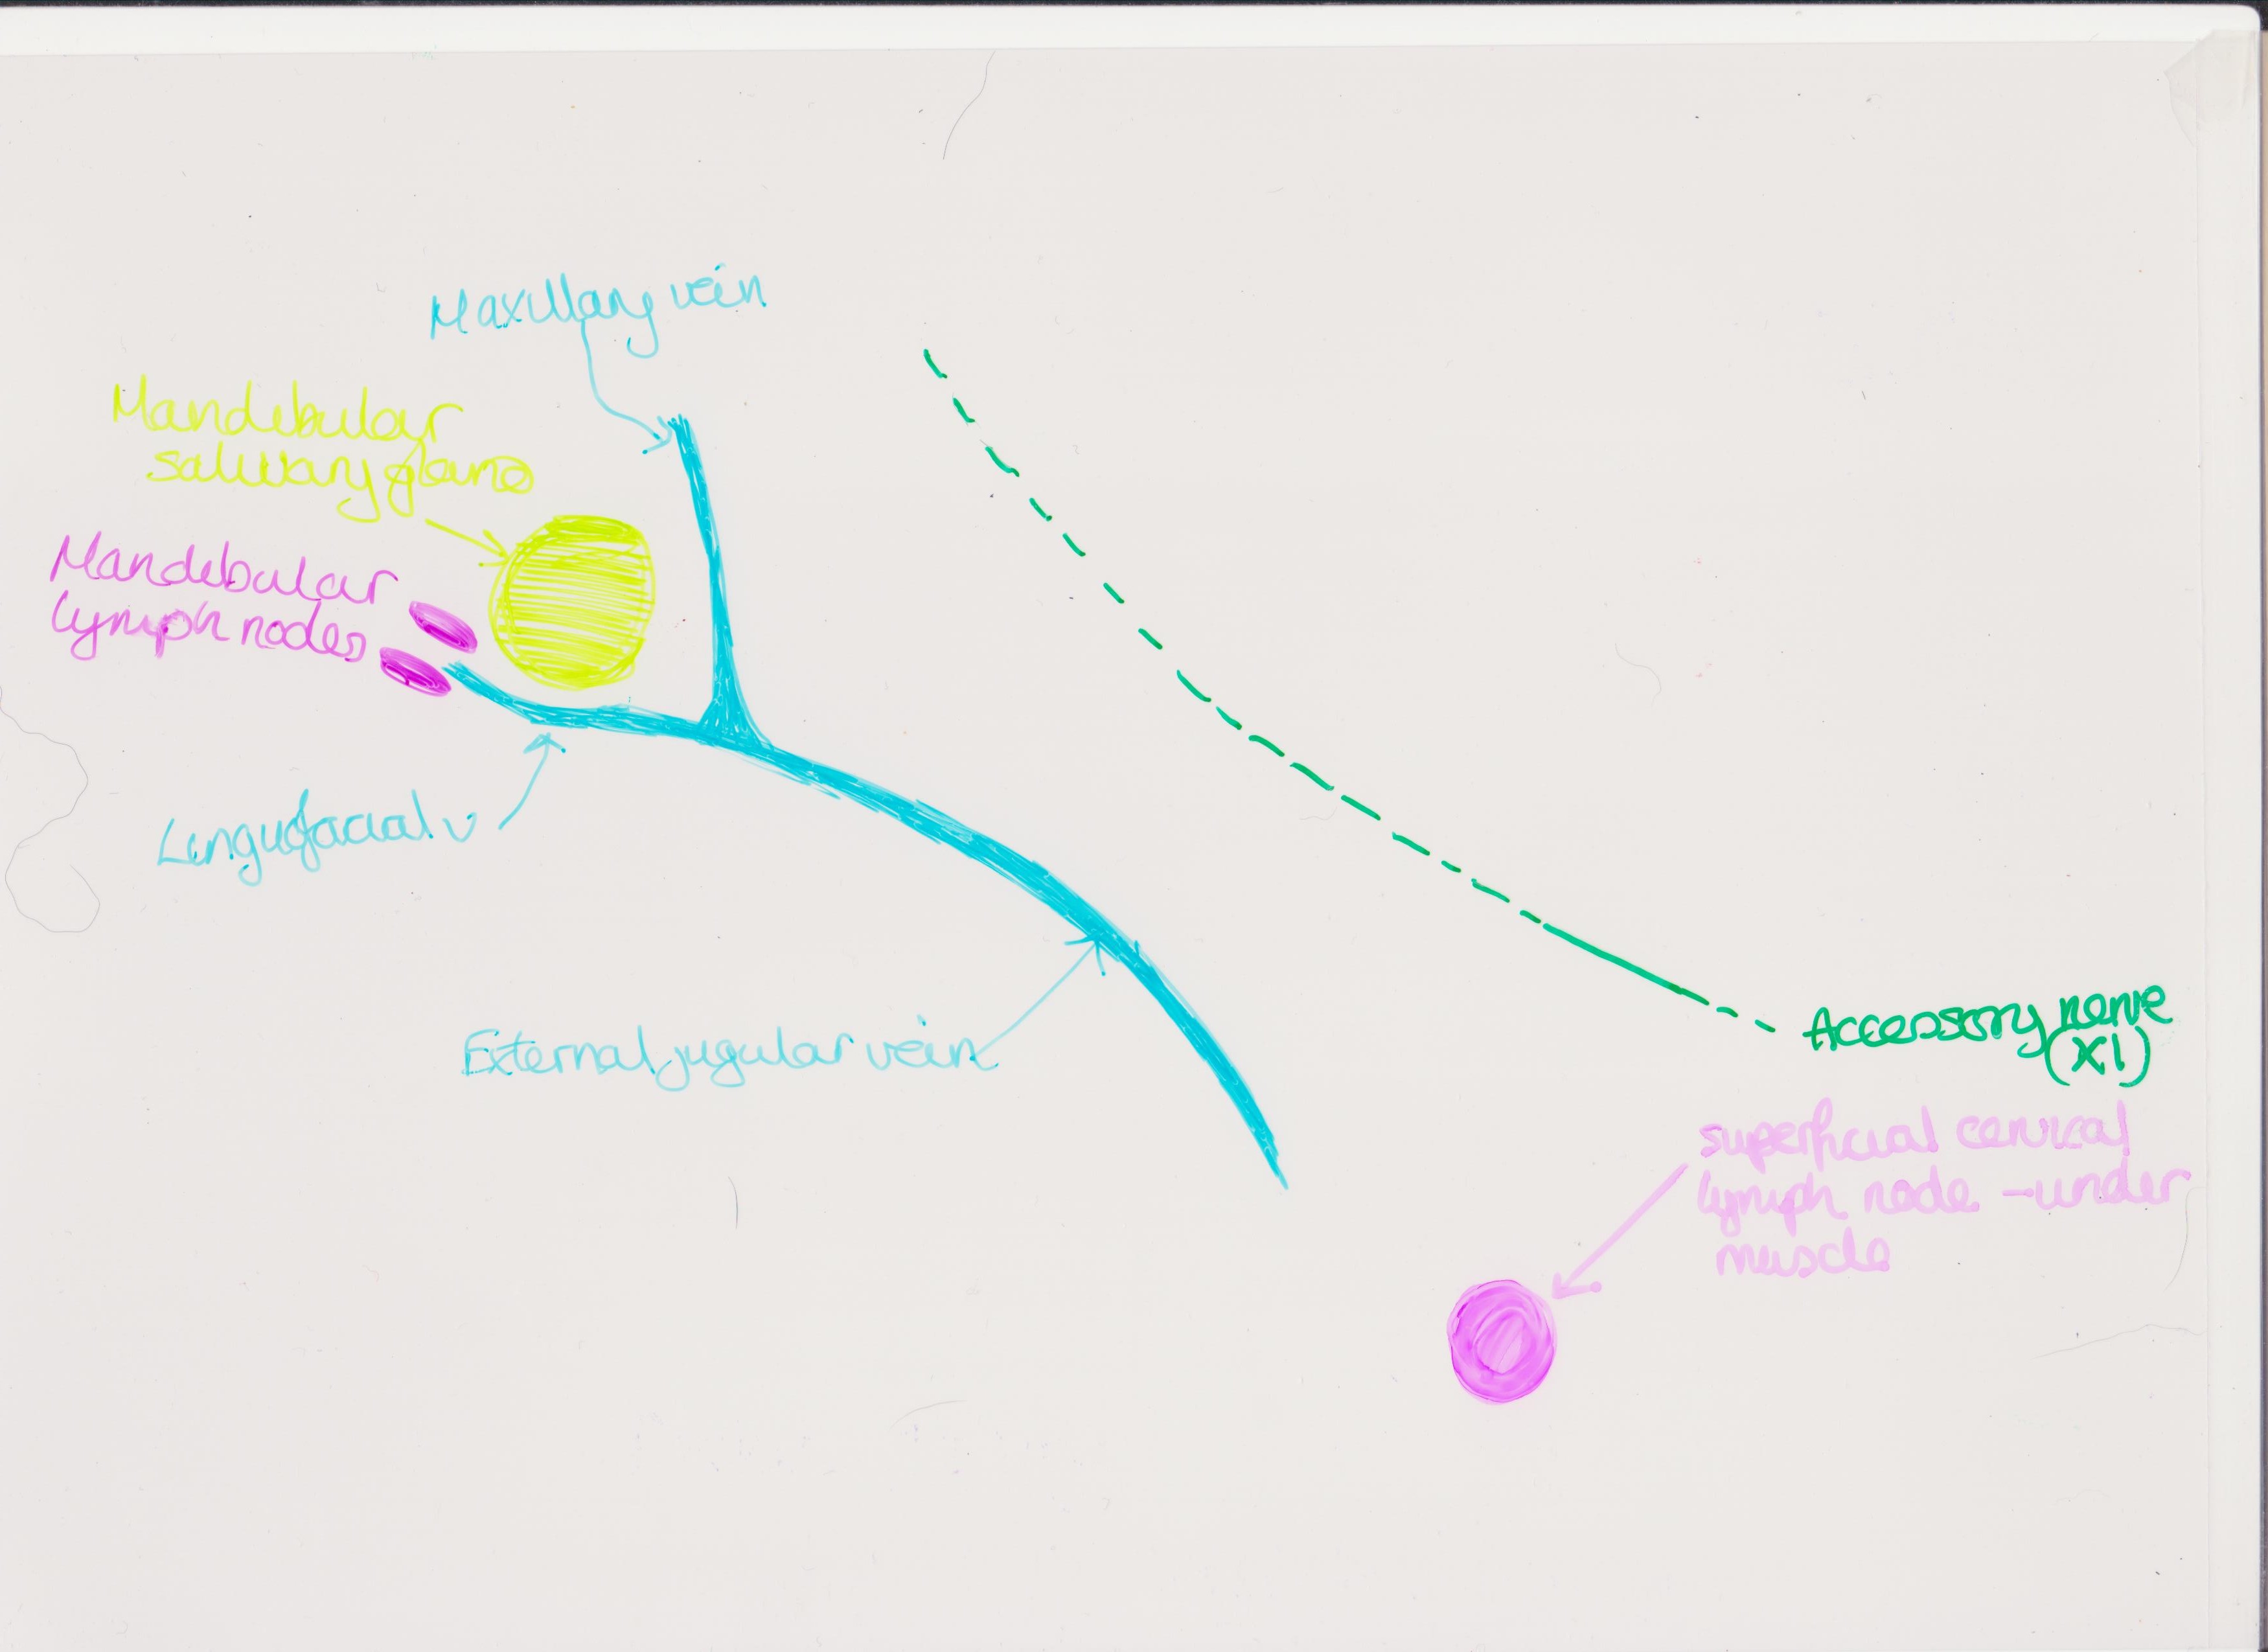 Maxillary vein
Mandibular
salivary gland
Mandibular
lymph nodes
Linguofacial v
External jugular vein
Accessory nerve
(XI)
superficial cervical
lymph node - under
muscle